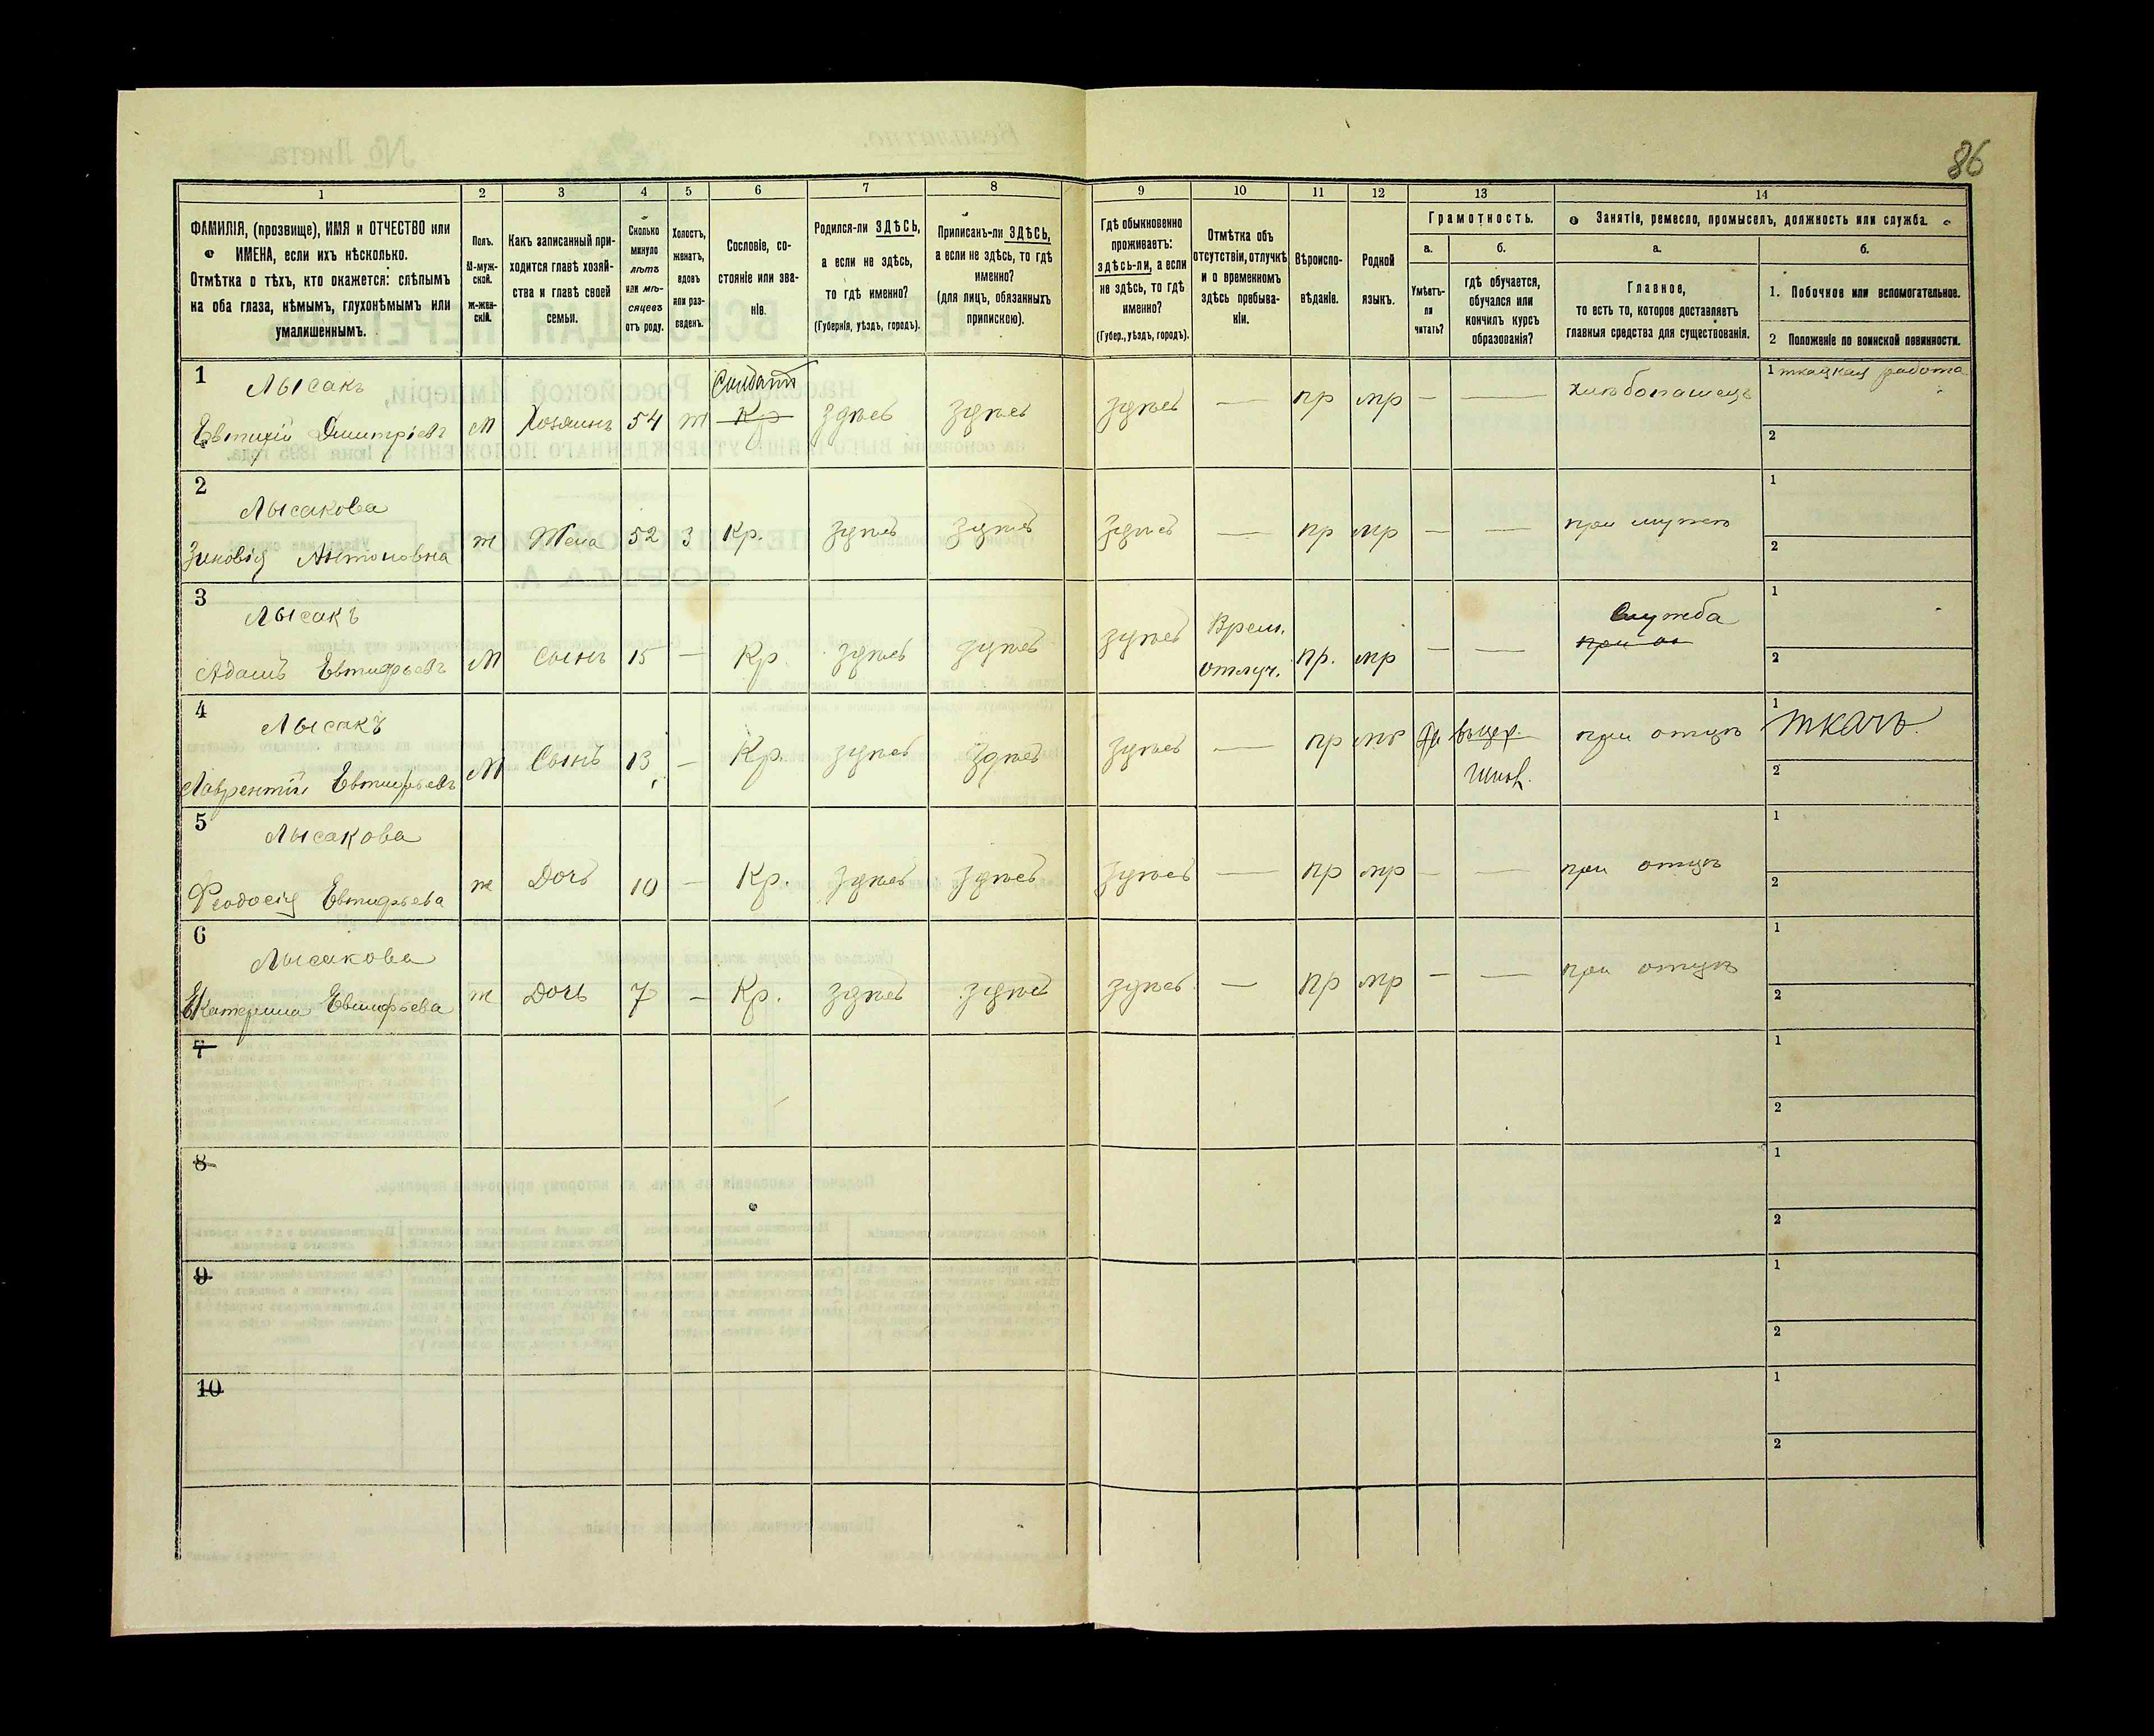 86
1 2 3 4 5 6 7 8 9 10 11 12 13 14
ФАМИЛІЯ, (прозвище), ИМЯ и ОТЧЕСТВО или
ИМЕНА, если ихъ нѣсколько.
Отмѣтка о тѣхъ, кто окажется: слѣпымъ
на оба глаза, нѣмымъ, глухонѣмымъ или
умалишеннымъ.
Полъ.
М-муж-
ской.
Ж-жен-
скій.
Какъ записанный при-
ходится главѣ хозяй-
ства и главѣ своей
семьи.
Сколько
минуло
лѣтъ
или мѣ-
сяцевъ
отъ роду.
Холостъ,
женатъ,
вдовъ
или раз-
веденъ.
Сословіе, со-
стояніе или зва-
ніе.
Родился-ли ЗДѢСЬ,
а если не здѣсь,
то гдѣ именно?
(Губернія, уѣздъ, городъ).
Приписанъ-ли ЗДѢСЬ,
а если не здѣсь, то гдѣ
именно?
(для лицъ, обязанныхъ
припискою).
Гдѣ обыкновенно
проживаетъ:
здѣсь-ли, а если
не здѣсь, то гдѣ
именно?
(Губер., уѣздъ, городъ).
Отмѣтка объ
отсутствіи, отлучкѣ
и о временномъ
здѣсь пребыва-
ніи.
Вѣроиспо-
вѣданіе.
Родной
языкъ.
Грамотность.
а. б.
Умѣетъ-
ли
читать?
гдѣ обучается,
обучался или
кончилъ курсъ
образованія?
Занятіе, ремесло, промыселъ, должность или служба.
а. б.
Главное,
то есть то, которое доставляетъ
главныя средства для существованія.
1. Побочное или вспомогательное.
2 Положеніе по воинской повинности.
1 Лысакъ Солдатъ 1 ткацкая работа
Евтихій Дмитріевъ М Хозяинъ 54 ж Кр здѣсь здѣсь здѣсь — пр мр — — хлѣбопашецъ
2
2 Лысакова 1
Зиновія Антоновна ж Жена 52 з Кр. здѣсь здѣсь здѣсь — пр мр — — при мужѣ
2
3 Лысакъ Врем. Служба 1
Адамъ Евтифьевъ М Сынъ 15 — Кр. здѣсь здѣсь здѣсь отлуч. пр. мр — — при от
2
4 Лысакъ 1 ткачъ
Лаврентій Евтифьевъ М Сынъ 13 — Кр. здѣсь здѣсь здѣсь — пр мр да школ. при отцѣ
2
5 Лысакова 1
Феодосія Евтифьева ж Дочь 10 — Кр. здѣсь здѣсь здѣсь — пр мр — — при отцѣ
2
6 Лысакова 1
Екатерина Евтифьева ж Дочь 7 — Кр. здѣсь здѣсь здѣсь — пр мр — — при отцѣ
2
7 1
2
8 1
2
9 1
2
10 1
2